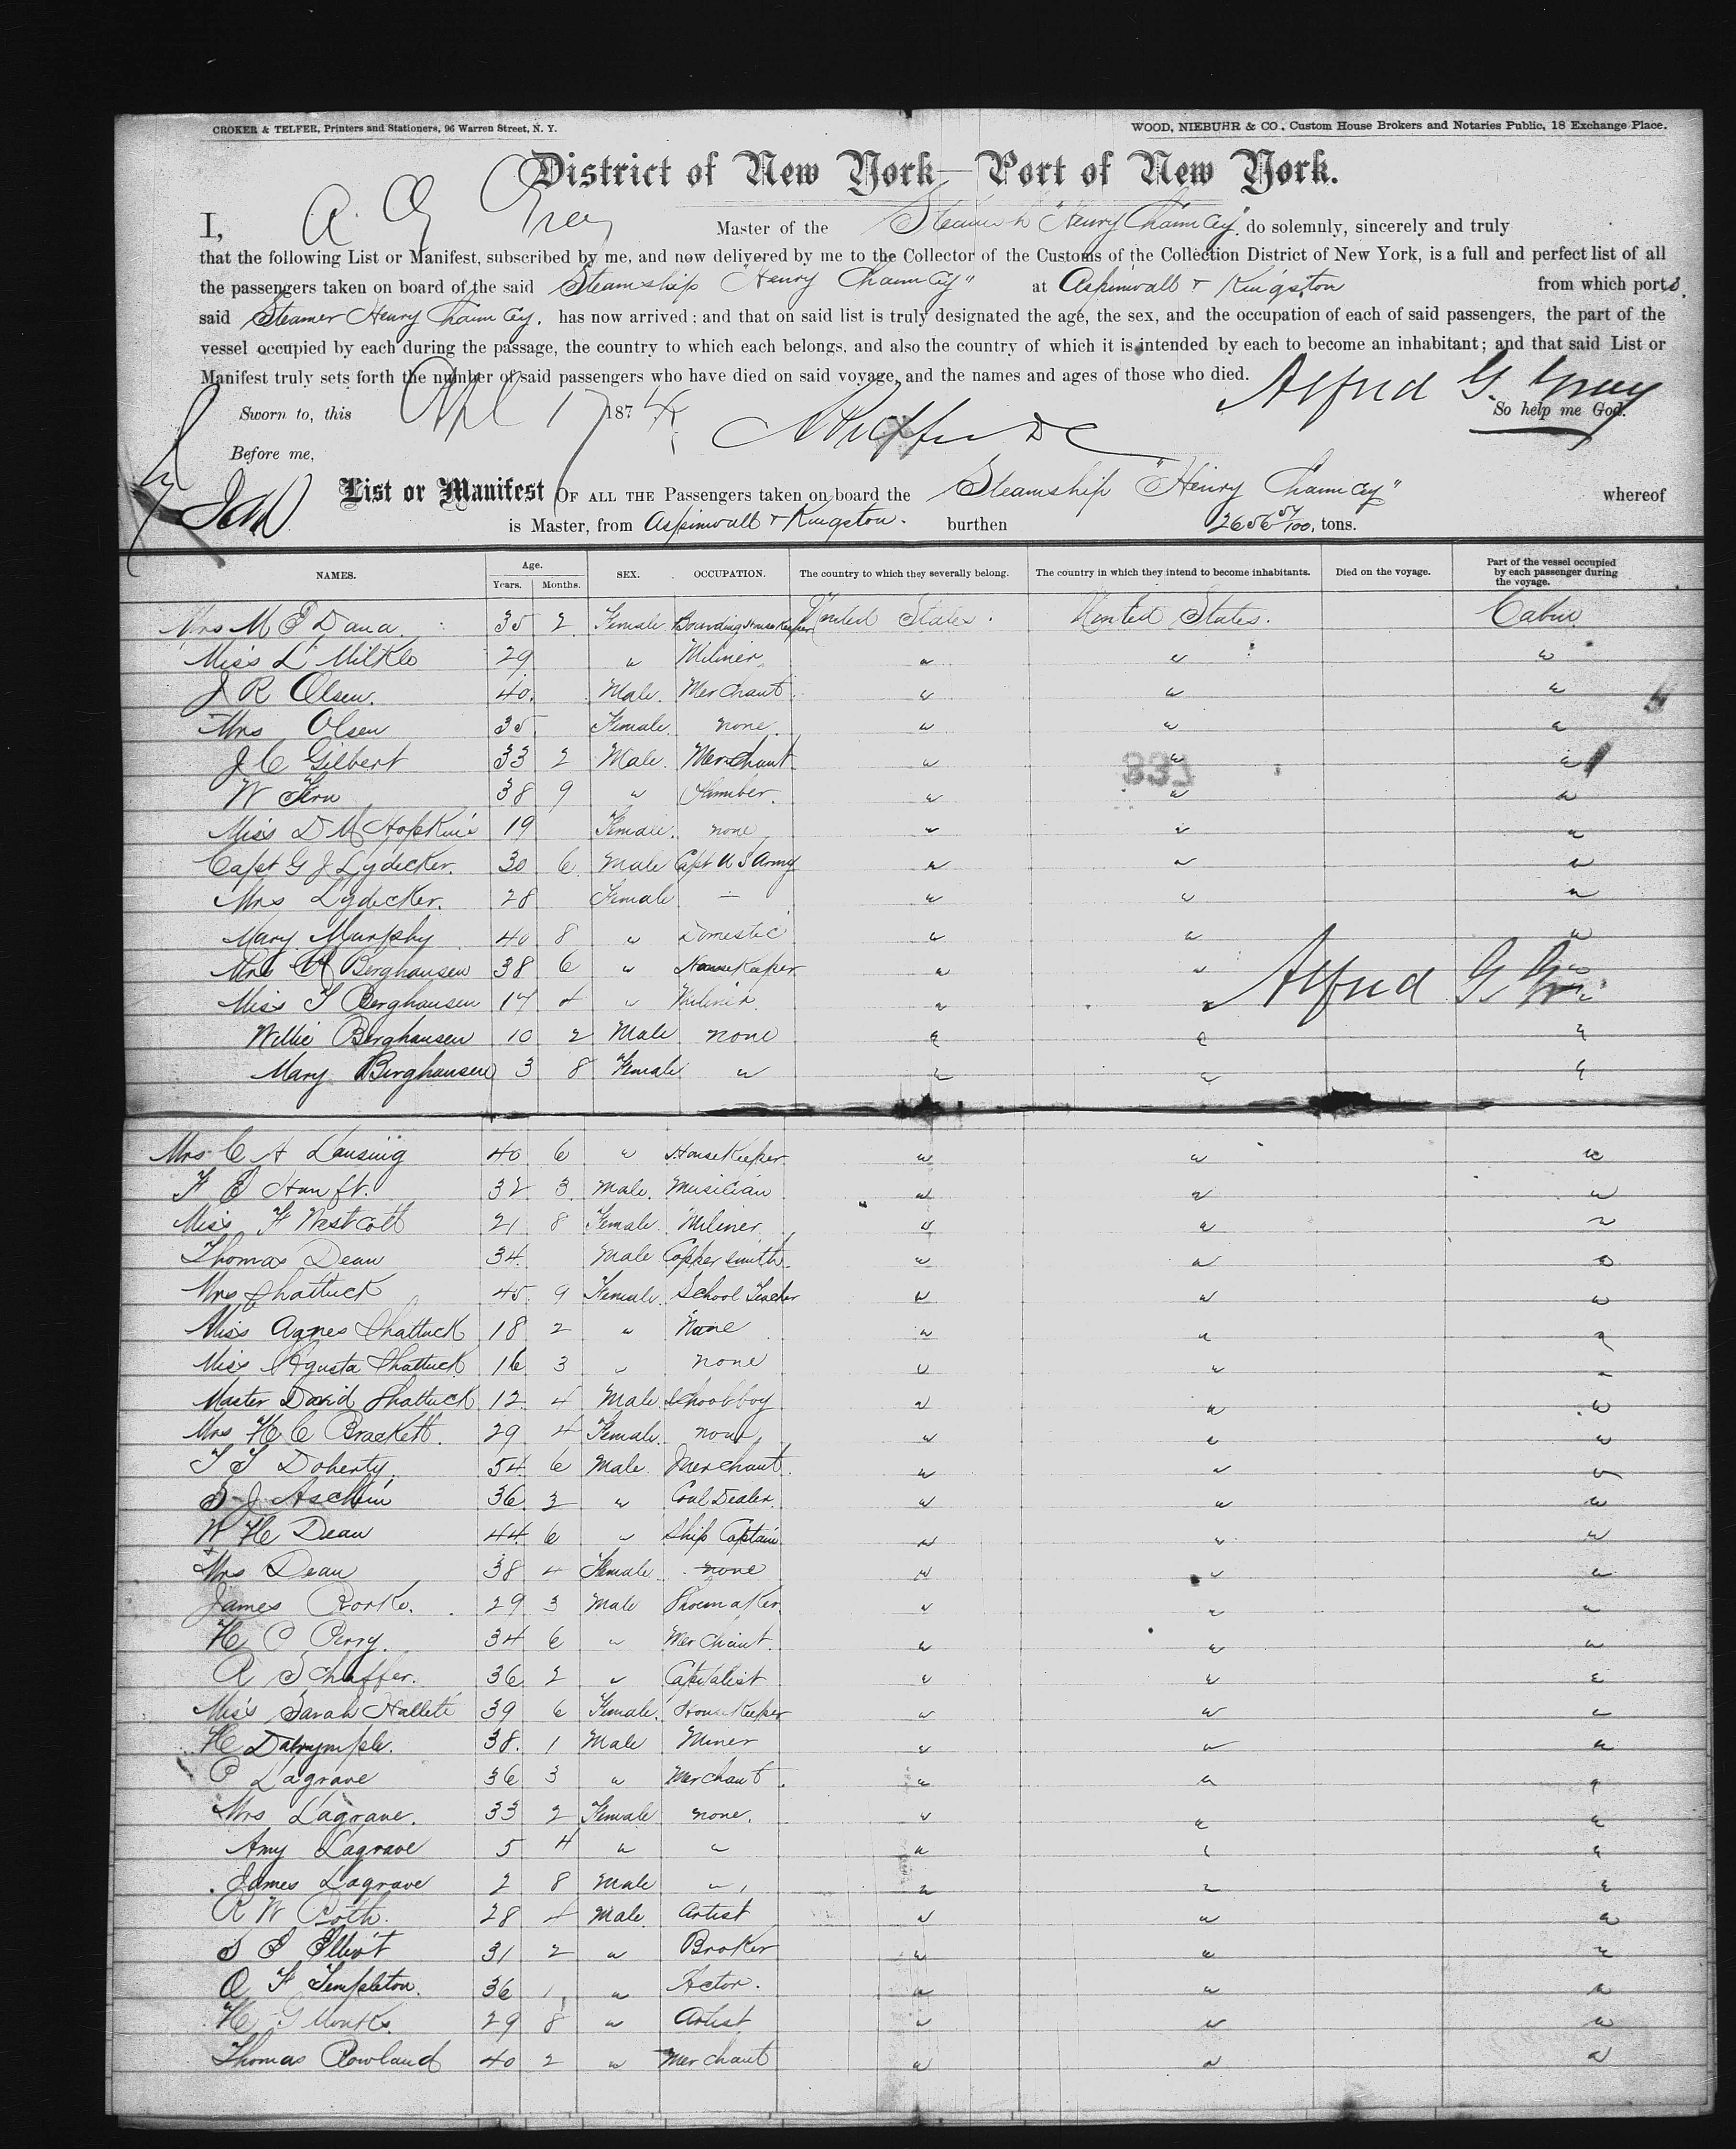 CROKER & TELFER, Printers and Stationers, 96 Warren Street, N. Y.
WOOD, NIEBUHR & CO., Custom House Brokers and Notaries Public, 18 Exchange Place.
District of New York—Port of New York.
I, A. G. Gray Master of the Steamsh "Henry Chauncey" do solemnly, sincerely and truly
that the following List or Manifest, subscribed by me, and now delivered by me to the Collector of the Customs of the Collection District of New York, is a full and perfect list of all
the passengers taken on board of the said Steamship "Henry Chauncey" at Aspinwall & Kingston from which ports,
said Steamer Henry Chauncey. has now arrived; and that on said list is truly designated the age, the sex, and the occupation of each of said passengers, the part of the
vessel occupied by each during the passage, the country to which each belongs, and also the country of which it is intended by each to become an inhabitant; and that said List or
Manifest truly sets forth the number of said passengers who have died on said voyage, and the names and ages of those who died.
Alfred G. Gray
Sworn to, this Apl 17 1874 So help me God.
Before me,
List or Manifest OF ALL THE Passengers taken on board the Steamship "Henry Chauncey" whereof
is Master, from Aspinwall & Kingston. burthen 2656 57/100, tons.
NAMES. Age. Years. Months. SEX. OCCUPATION. The country to which they severally belong. The country in which they intend to become inhabitants. Died on the voyage. Part of the vessel occupied by each passenger during the voyage.
Mrs M E Dana 35 2 Female Boarding House Keeper United States. United States. Cabin
Miss L Milkle 29 " Miliner " " "
J R Olsen. 40. Male. Merchant " " "
Mrs Olsen 35 Female none " " "
J C Gilbert 33 2 Male. Merchant " " "
837
W Fern 38 9 " " " "
Miss D M Hopkins 19 Female. none " " "
Capt G J Lydecker. 30 6 Male Capt U S Army " " "
Mrs Lydecker. 28 Female — " " "
Mary Murphy 40 8 " Domestic " " "
Mrs Berghausen 38 6 " HouseKeeper " " "
Alfred G. Gr
Miss T Berghausen 17 4 " Miliner " " "
Willie Berghausen 10 2 Male none " " "
Mary Berghausen 3 8 Female " " " "
Mrs C H Lansing 40 6 " HouseKeeper " " "
F E Hanft. 32 3 Male. Musician " " "
Miss F Westcott 21 8 Female. Miliner " " "
Thomas Dean 34. Male Coppersmith " " "
Mrs Shattuck 45. 9 Female. School Teacher " " "
Miss Agnes Shattuck 18 2 " None " " "
Miss Agusta Shattuck 16 3 " none " " "
Master David Shattuck 12 4 Male Schoolboy " " "
Mrs H C Brackett. 29 4 Female. none " " "
T T Doherty 54 6 Male Merchant " " "
S J Aschim 36 3 " Coal Dealer. " " "
W H Dean 44. 6 " Ship Captain " " "
Mrs Dean 38 4 Female. none " " "
James Rorke. 29 3 Male Shoemaker. " " "
H C Perry. 34 6 " Merchant. " " "
R Schaffer. 36 2 " Capitalist " " "
Miss Sarah Hallett 39 6 Female. HouseKeeper " " "
H Dalrymple. 38. 1 Male Miner " " "
P Lagrave 36 3 " Merchant. " " "
Mrs Lagrave. 33 2 Female none. " " "
Amy Lagrave 5 4 " " " " "
James Lagrave 2 8 Male " " " "
R W Roth. 28 4 Male. Artist " " "
S E Elliot 31 2 " Broker " " "
O F Templeton. 36 1 " Actor. " " "
H G Monks. 29 8 " Artist " " "
Thomas Rowland 40 2 " Merchant " " "